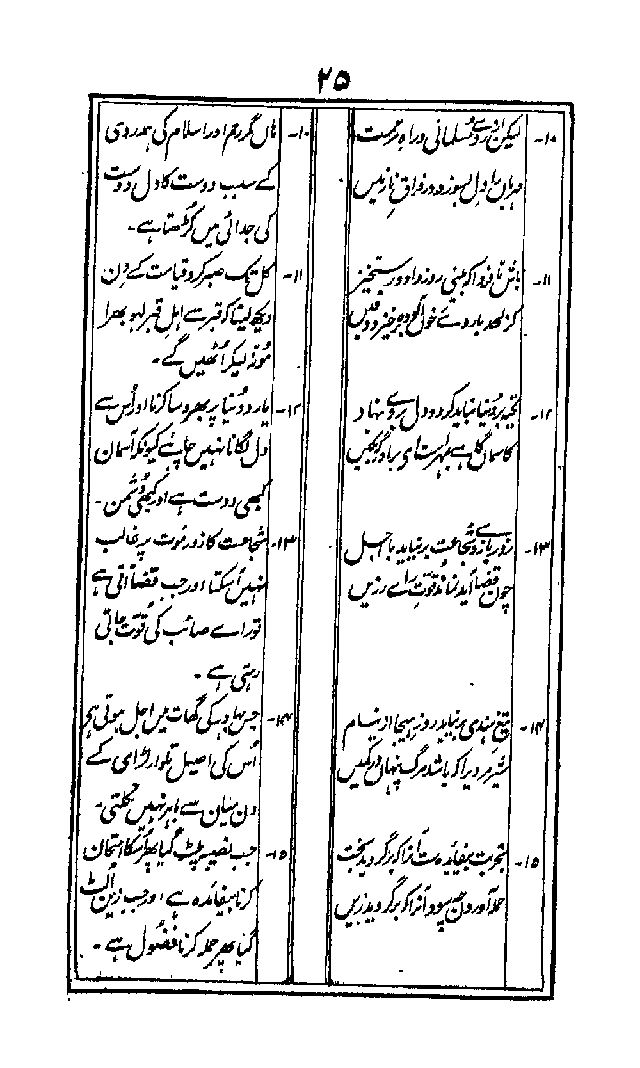 ۲۵
۱۰- لیکن از روے مسلمانی و راہ مرحمت
مہربان را دل بسوزد در فراق نازنین
۱۱- باش تا فردا کہ بینی روز داد و رستخیز
کز لحد با روے خون آلودہ برخیزد دفین
۱۲- تکیہ بر دنیا نباید کرد و دل بروے نہاد
کاسمان گاہے بمہرست ای برادر گہ بکین
۱۳- زور بازوے شجاعت بر نیاید با اجل
چون قضا آید نماند قوت راے رزین
۱۴- تیغ ہندی بر نیاید روز ہیجا از نیام
شیر مردیرا کہ باشد مرگ پنہان در کمین
۱۵- تجربت بیفائدہ ست آنرا کہ برگردید بخت
حملہ آوردن چہ سود آنرا کہ برگردید زین
۱۰- ہاں مگر رحم اور اسلام کی ہمدردی
کے سبب دوست کا دل دوست
کی جدائی میں کُڑھتا ہے۔
۱۱- کل تک صبر کرو قیامت کے دن
دیکھ لینا کہ قبر سے اہلِ قبر لہو بھرا
مُوڑ لیکر اُٹھیں گے۔
۱۲- یارو دُنیا پر بھروسا کرنا اور اُس سے
دل لگانا نہیں چاہئے کیونکہ آسمان
کبھی دوست ہے اور کبھی دُشمن۔
۱۳- شجاعت کا زور موت پر غالب
نہیں آسکتا اور جب قضا آتی ہے
تو راے صائب کی قوّت جاتی
رہتی ہے۔
۱۴- جس بہادر کی گھات میں اجل ہوتی ہے
اُس کی اصیل تلوار لڑائی کے
دن میان سے باہر نہیں نکلتی۔
۱۵- جب نصیب پلٹ گیا پھر اُسکا امتحان
کرنا بیفائدہ ہے اور جب زین اُلٹ
گیا پھر حملہ کرنا فضُول ہے۔